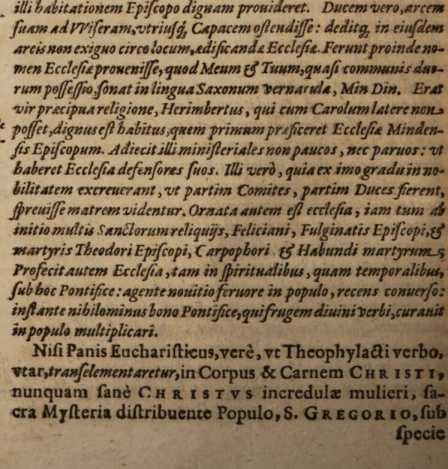 illi habitationem Episcopo dignam prouideret. Ducem vero, arcem
suam ad VViseram, vtriusq́; Capacem ostendisse: deditq́; in eiusdem
arcis non exiguo circo locum, ædificandæ Ecclesiæ. Ferunt proinde no-
men Ecclesiæ prouenisse, quod Meum & Tuum, quasi communis duo-
rum possessio, sonat in lingua Saxonum vernacula, Min Din. Erat
vir præcipua religione, Herimbertus, qui cum Carolum latere non
posset, dignus est habitus, quem primum præficeret Ecclesiæ Minden-
sis Episcopum. Adiecit illi ministeriales non paucos, nec paruos: vt
haberet Ecclesia defensores suos. Illi verò, quia ex imo gradu in no-
bilitatem excreuerant, vt partim Comites, partim Duces fierent,
spreuisse matrem videntur. Ornata autem est ecclesia, iam tum ab
initio multis Sanctorum reliquijs, Feliciani, Fulginatis Episcopi, &
martyris Theodori Episcopi, Carpophori & Habundi martyrum,
Profecit autem Ecclesia, tam in spiritualibus, quam temporalibus,
sub hoc Pontifice: agente nouitio feruore in populo, recens conuerso:
instante nihilominus bono Pontifice, qui frugem diuini verbi, curauit
in populo multiplicari.
Nisi Panis Eucharisticus, verè, vt Theophylacti verbo,
vtar, transelementaretur, in Corpus & Carnem CHRISTI,
nunquam sanè CHRISTVS incredulæ mulieri, sa-
cra Mysteria distribuente Populo, S. GREGORIO, sub
specie